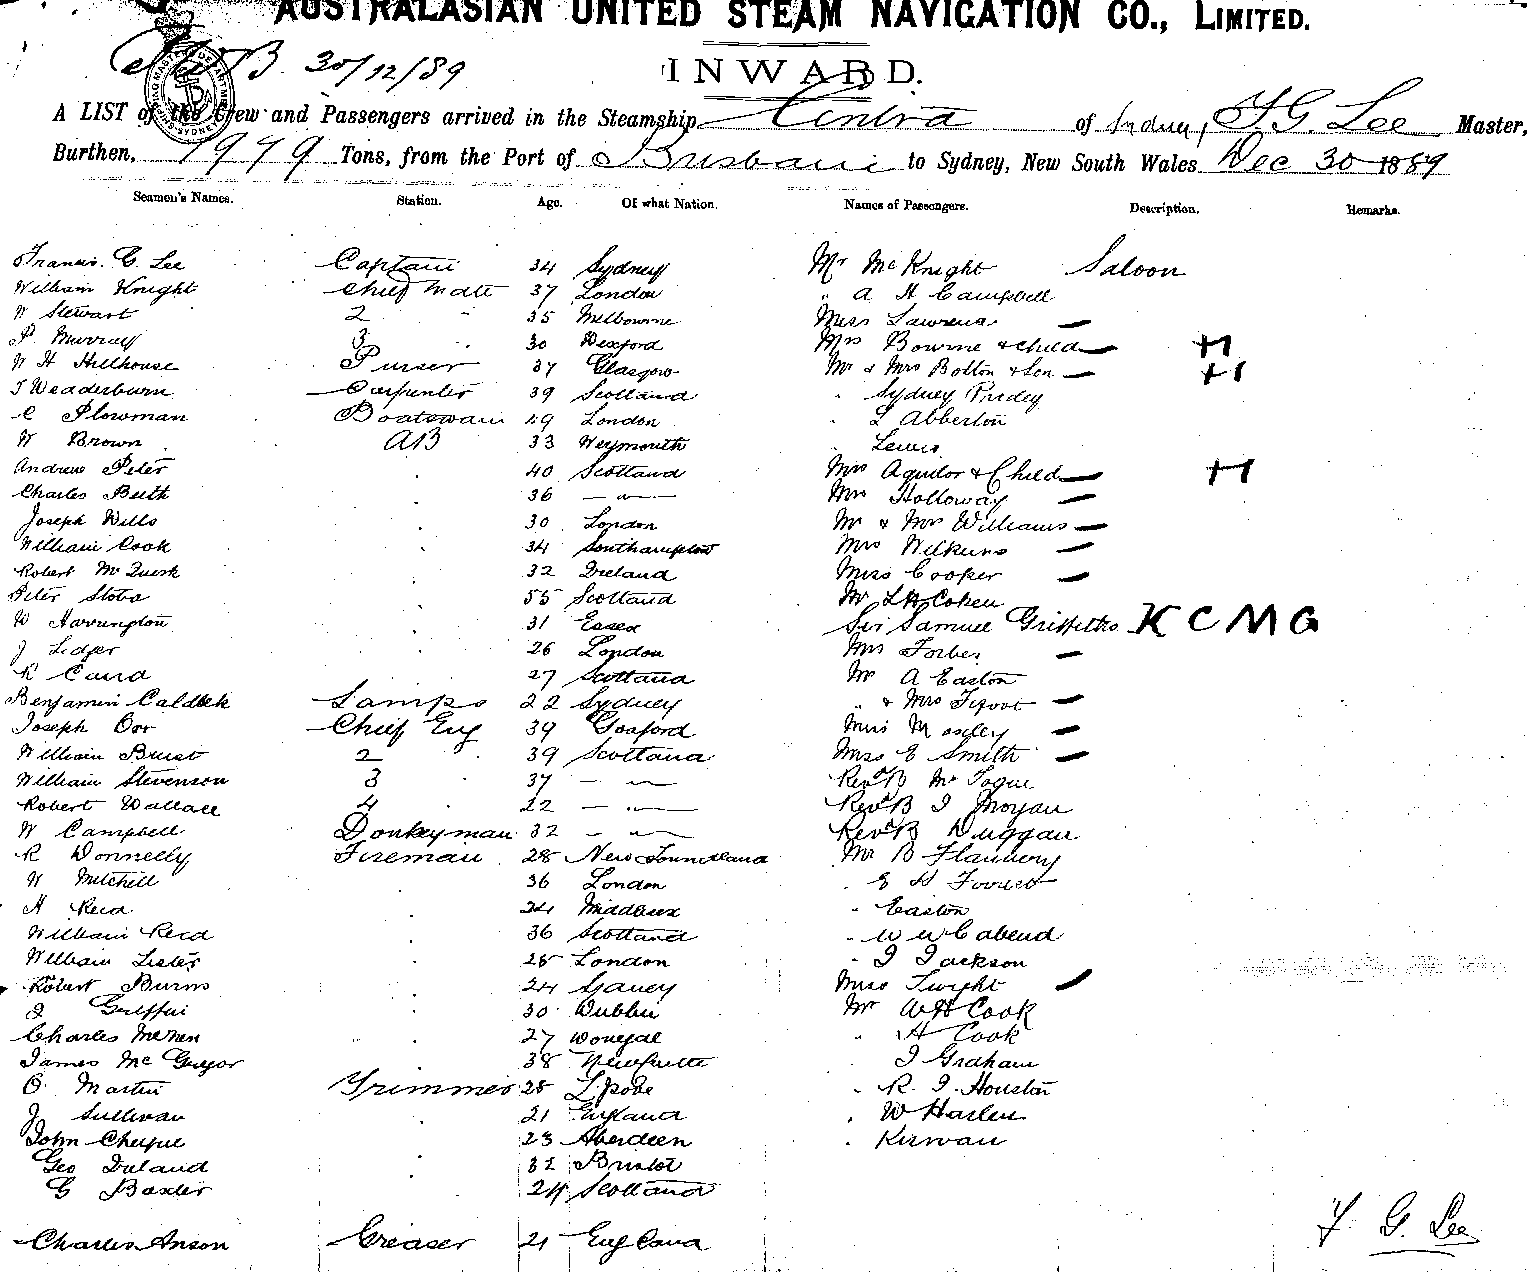 AUSTRALASIAN UNITED STEAM NAVIGATION CO., LIMITED.
30/12/89
INWARD.
A LIST of the Crew and Passengers arrived in the Steamship Cintra of Sydney, F. G. Lee Master,
Burthen, 1979 Tons, from the Port of Brisbane to Sydney, New South Wales Dec 30 1889
Seamen's Names. Station. Age. Of what Nation. Names of Passengers. Description. Remarks.
Francis. G. Lee Captain 34 Sydney Mr McKnight Saloon
William Knight Chief Mate 37 London " A H Campbell
W Stewart 2 " 35 Melbourne Miss Lawrence —
P. Murray 3 " 30 Wexford Mrs Bowme & child —
W H Hillhouse Purser 37 Glasgow Mr & Mrs Bolton & Son —
T Wedderburn Carpenter 39 Scotland " Sydney
C Plowman Boatswain 49 London " Abberton
W Brown AB 33 Weymouth " Lewis
Andrew Peter " 40 Scotland Mrs Aguilor & Child —
Charles Beith " 36 — " — Mrs Holloway —
Joseph Wills " 30 London Mr & Mrs Williams —
William Cook " 34 Southampton Mrs Wilkins —
Robert 32 Ireland Miss Cooper —
Peter 55 Scotland Mr Cohen
W Harrington 31 Essex Sir Samuel Griffiths K C M G
J Ledger 26 London Mrs Forbes —
R Caird 27 Scotland Mr A Easton
Benjamin Lamps 22 Sydney " & Mrs —
Joseph Orr Chief Eng 39 Gosford Miss Mosley —
William 2 39 Scotland Miss E Smith —
William Stevenson 3 37 — " — Revd B
Robert Wallace 4 22 — " — Revd B
W Campbell Donkeyman 32 — " — Revd B Duggan
R Donnelly Fireman 28 Mr B Flannery
W Mitchell 36 London " E H Forrest
H Reid 24 Middlesex " Easton
William Reid 36 Scotland
William Lister 28 London " Jackson
Robert Burns 24 Miss —
J Griffin 30 Dublin Mr Cook
Charles 27 Donegal " H Cook
James Mc Gregor 38 Graham
O Martin Trimmer 28 L'pool " R. J. Houston
J Sullivan 21 England " W
John 23 Aberdeen " Kirwan
Geo Ireland 32 Bristol
G Baxter 24 Scotland
Charles Anson Greaser 21 England
F G Lee